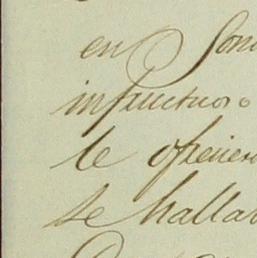 en Son
infructuoso
le ofreciese
se halla